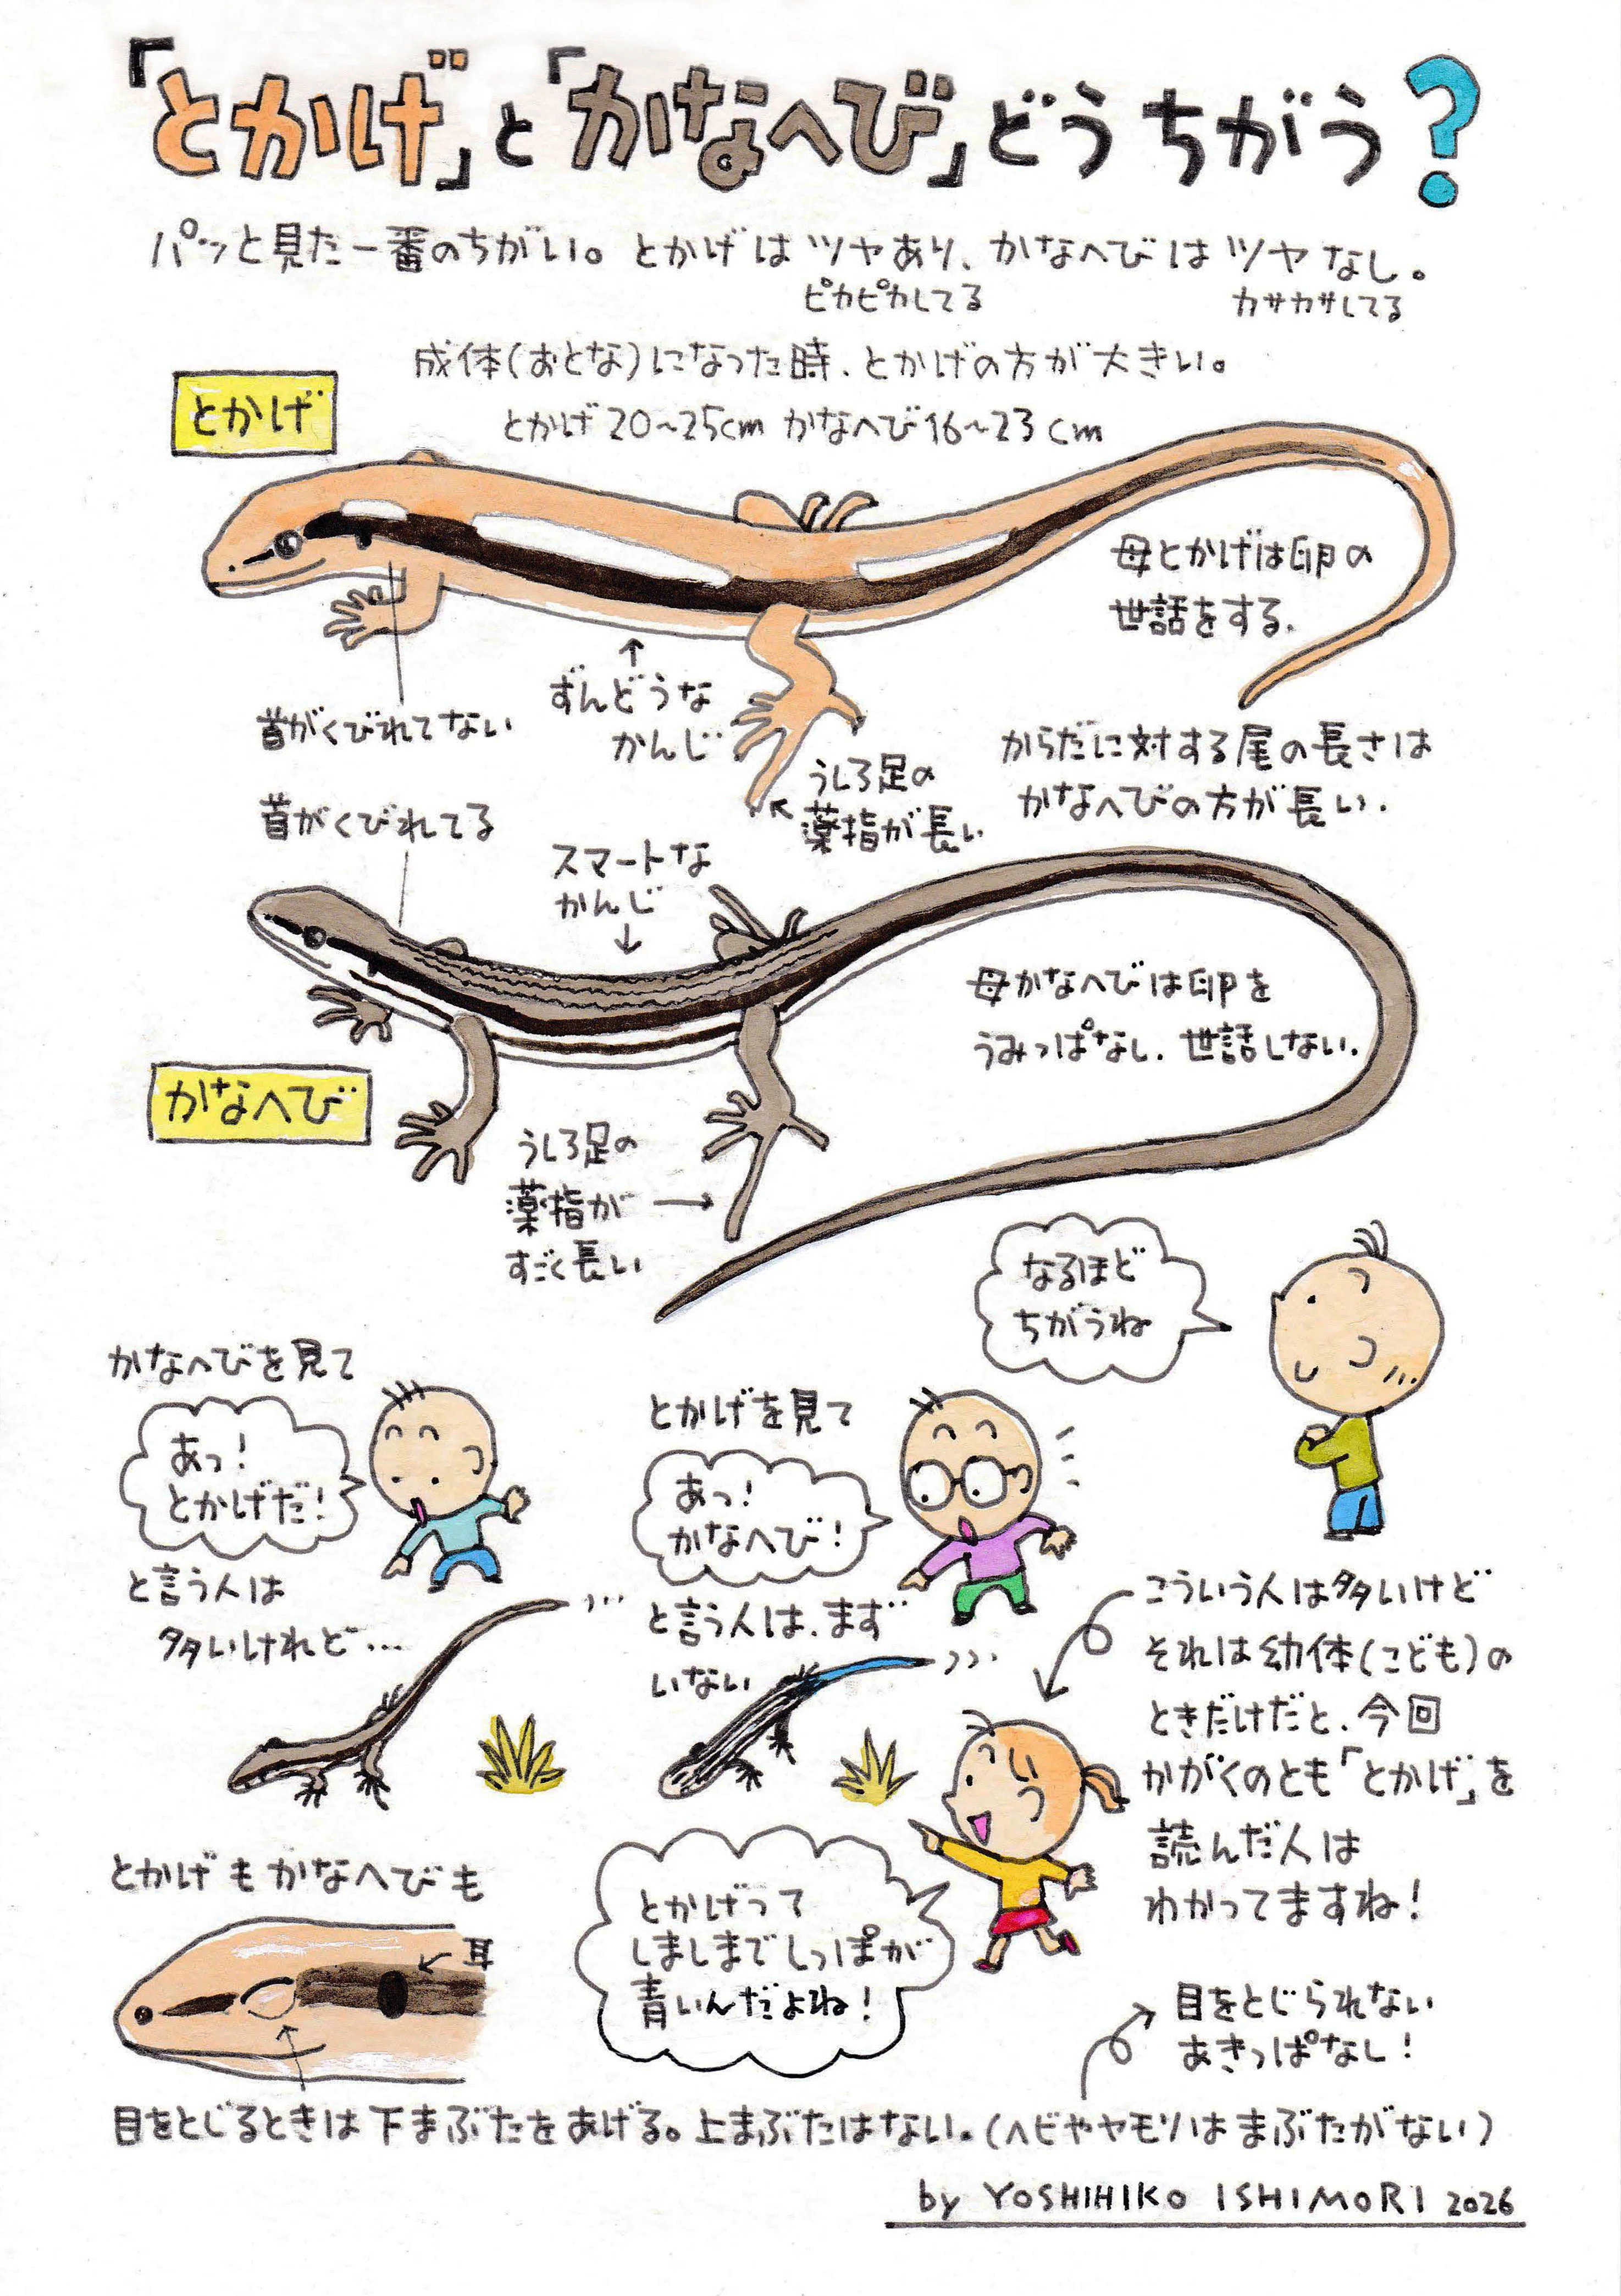 「とかげ」と「かなへび」どうちがう?
パッと見た一番のちがい。とかげはツヤあり、かなへびはツヤなし。
ピカピカしてる
カサカサしてる
成体(おとな)になった時、とかげの方が大きい。
とかげ
とかげ20~25cm かなへび16~23cm
母とかげは卵の
世話をする.
首がくびれてない
↑
ずんどうな
かんじ
うしろ足の
薬指が長い
からだに対する尾の長さは
かなへびの方が長い.
首がくびれてる
スマートな
かんじ
↓
母かなへびは卵を
うみっぱなし. 世話しない.
かなへび
うしろ足の
薬指が→
すごく長い
なるほど
ちがうね
かなへびを見て
あっ!
とかげだ!
と言う人は
多いけれど…
とかげを見て
あっ!
かなへび!
と言う人は、まず
いない
こういう人は多いけど
それは幼体(こども)の
ときだけだと、今回
かがくのとも「とかげ」を
読んだ人は
わかってますね!
とかげって
しましまでしっぽが
青いんだよね!
とかげもかなへびも
耳
目をとじられない
あきっぱなし!
目をとじるときは下まぶたをあげる。上まぶたはない。(ヘビやヤモリはまぶたがない)
by YOSHIHIKO ISHIMORI 2026